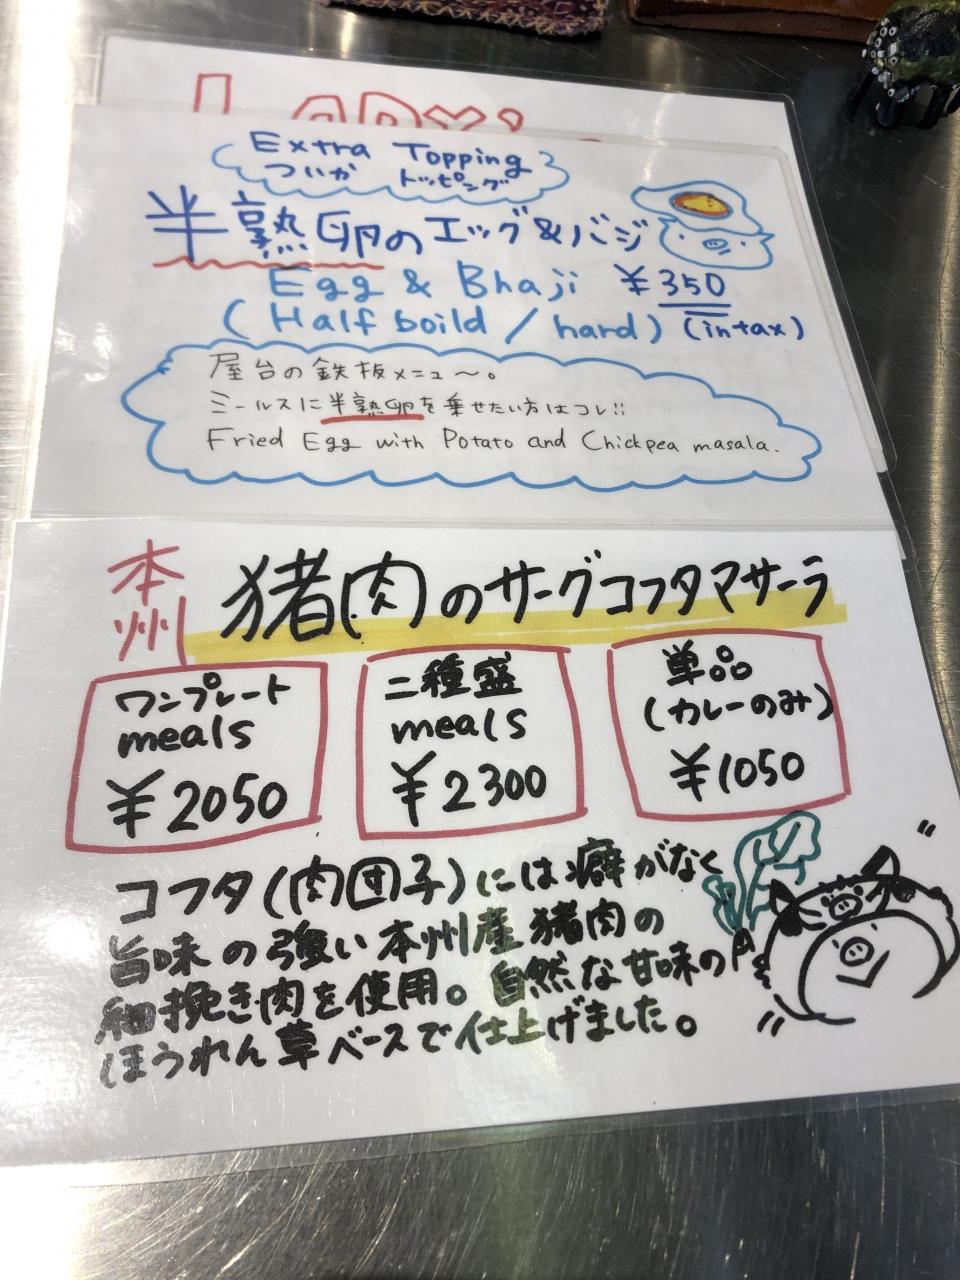 Extra Topping
ついか トッピング
半熟卵のエッグ&バジ
Egg & Bhaji ¥350
(Half boild / hard) (in tax)
屋台の鉄板メニュ〜。
ミールスに半熟卵を乗せたい方はコレ!!
Fried Egg with Potato and Chickpea masala.
本州 猪肉のサーグコフタマサーラ
ワンプレート
meals
¥2050
二種盛
meals
¥2300
単品
(カレーのみ)
¥1050
コフタ(肉団子)には癖がなく
旨味の強い本州産猪肉の
細挽き肉を使用。自然な甘味の
ほうれん草ベースで仕上げました。